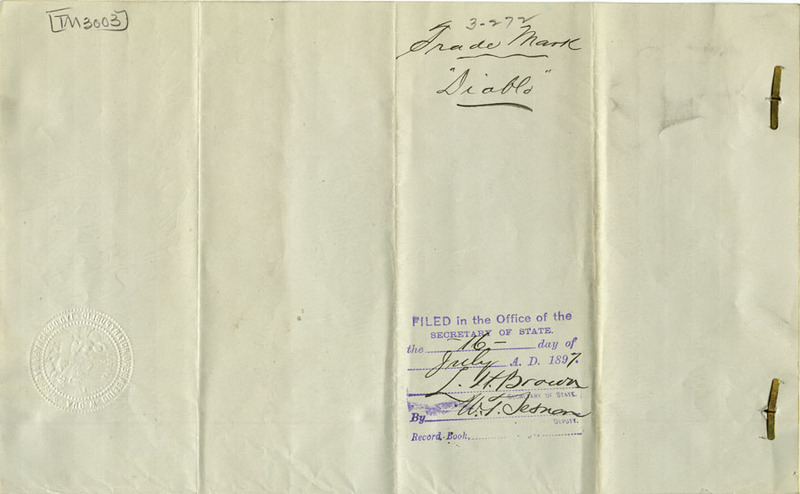 TM3003
3-272
Trade Mark
"Diablo"
FILED in the Office of the
SECRETARY OF STATE.
the 16 day of
July A. D. 1897.
L. H. Brown
SECRETARY OF STATE.
By W. T.
DEPUTY.
Record Book